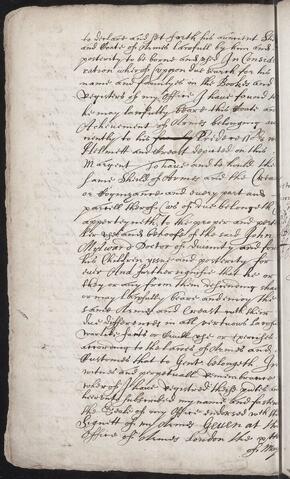 to declare and set forth his auncient Sh
and Coate of Armes Lawfull by him and
posterity to be borne and used In Consid
ration whereof uppon due search for his
name and familye in the Bookes and
Registers of my Office I have found
he may lawfully beare this Coate an
Atchevement of Armes belonging au
nciently to his
Helmett and Creast depicted on this
Margent To have and to hould the
same Shield of Armes and the Creast
or Cognyzance and every part and
parcell thereof as of due belongeth
apperteyneth to the proper and
use and behoofe of the said John
Mylward Doctor of divinity and for
his Children yssue and posterity for
ever And further signifie that he or
they or any from them descending
or may lawfully beare and enioy the
same Armes and Creast with their
due differences in all virtuous Law
warlike facts or Civill use or exercises
according to the Lawes of Armes and
Customes that to Gent belongeth In
witnes and perpetuall remembrance
whereof I have registred these
hereunto subscribed my name and fasten
the Seale of my Office endorsed with th
Signett of my Armes Geven at th
Office of Armes London the
of May